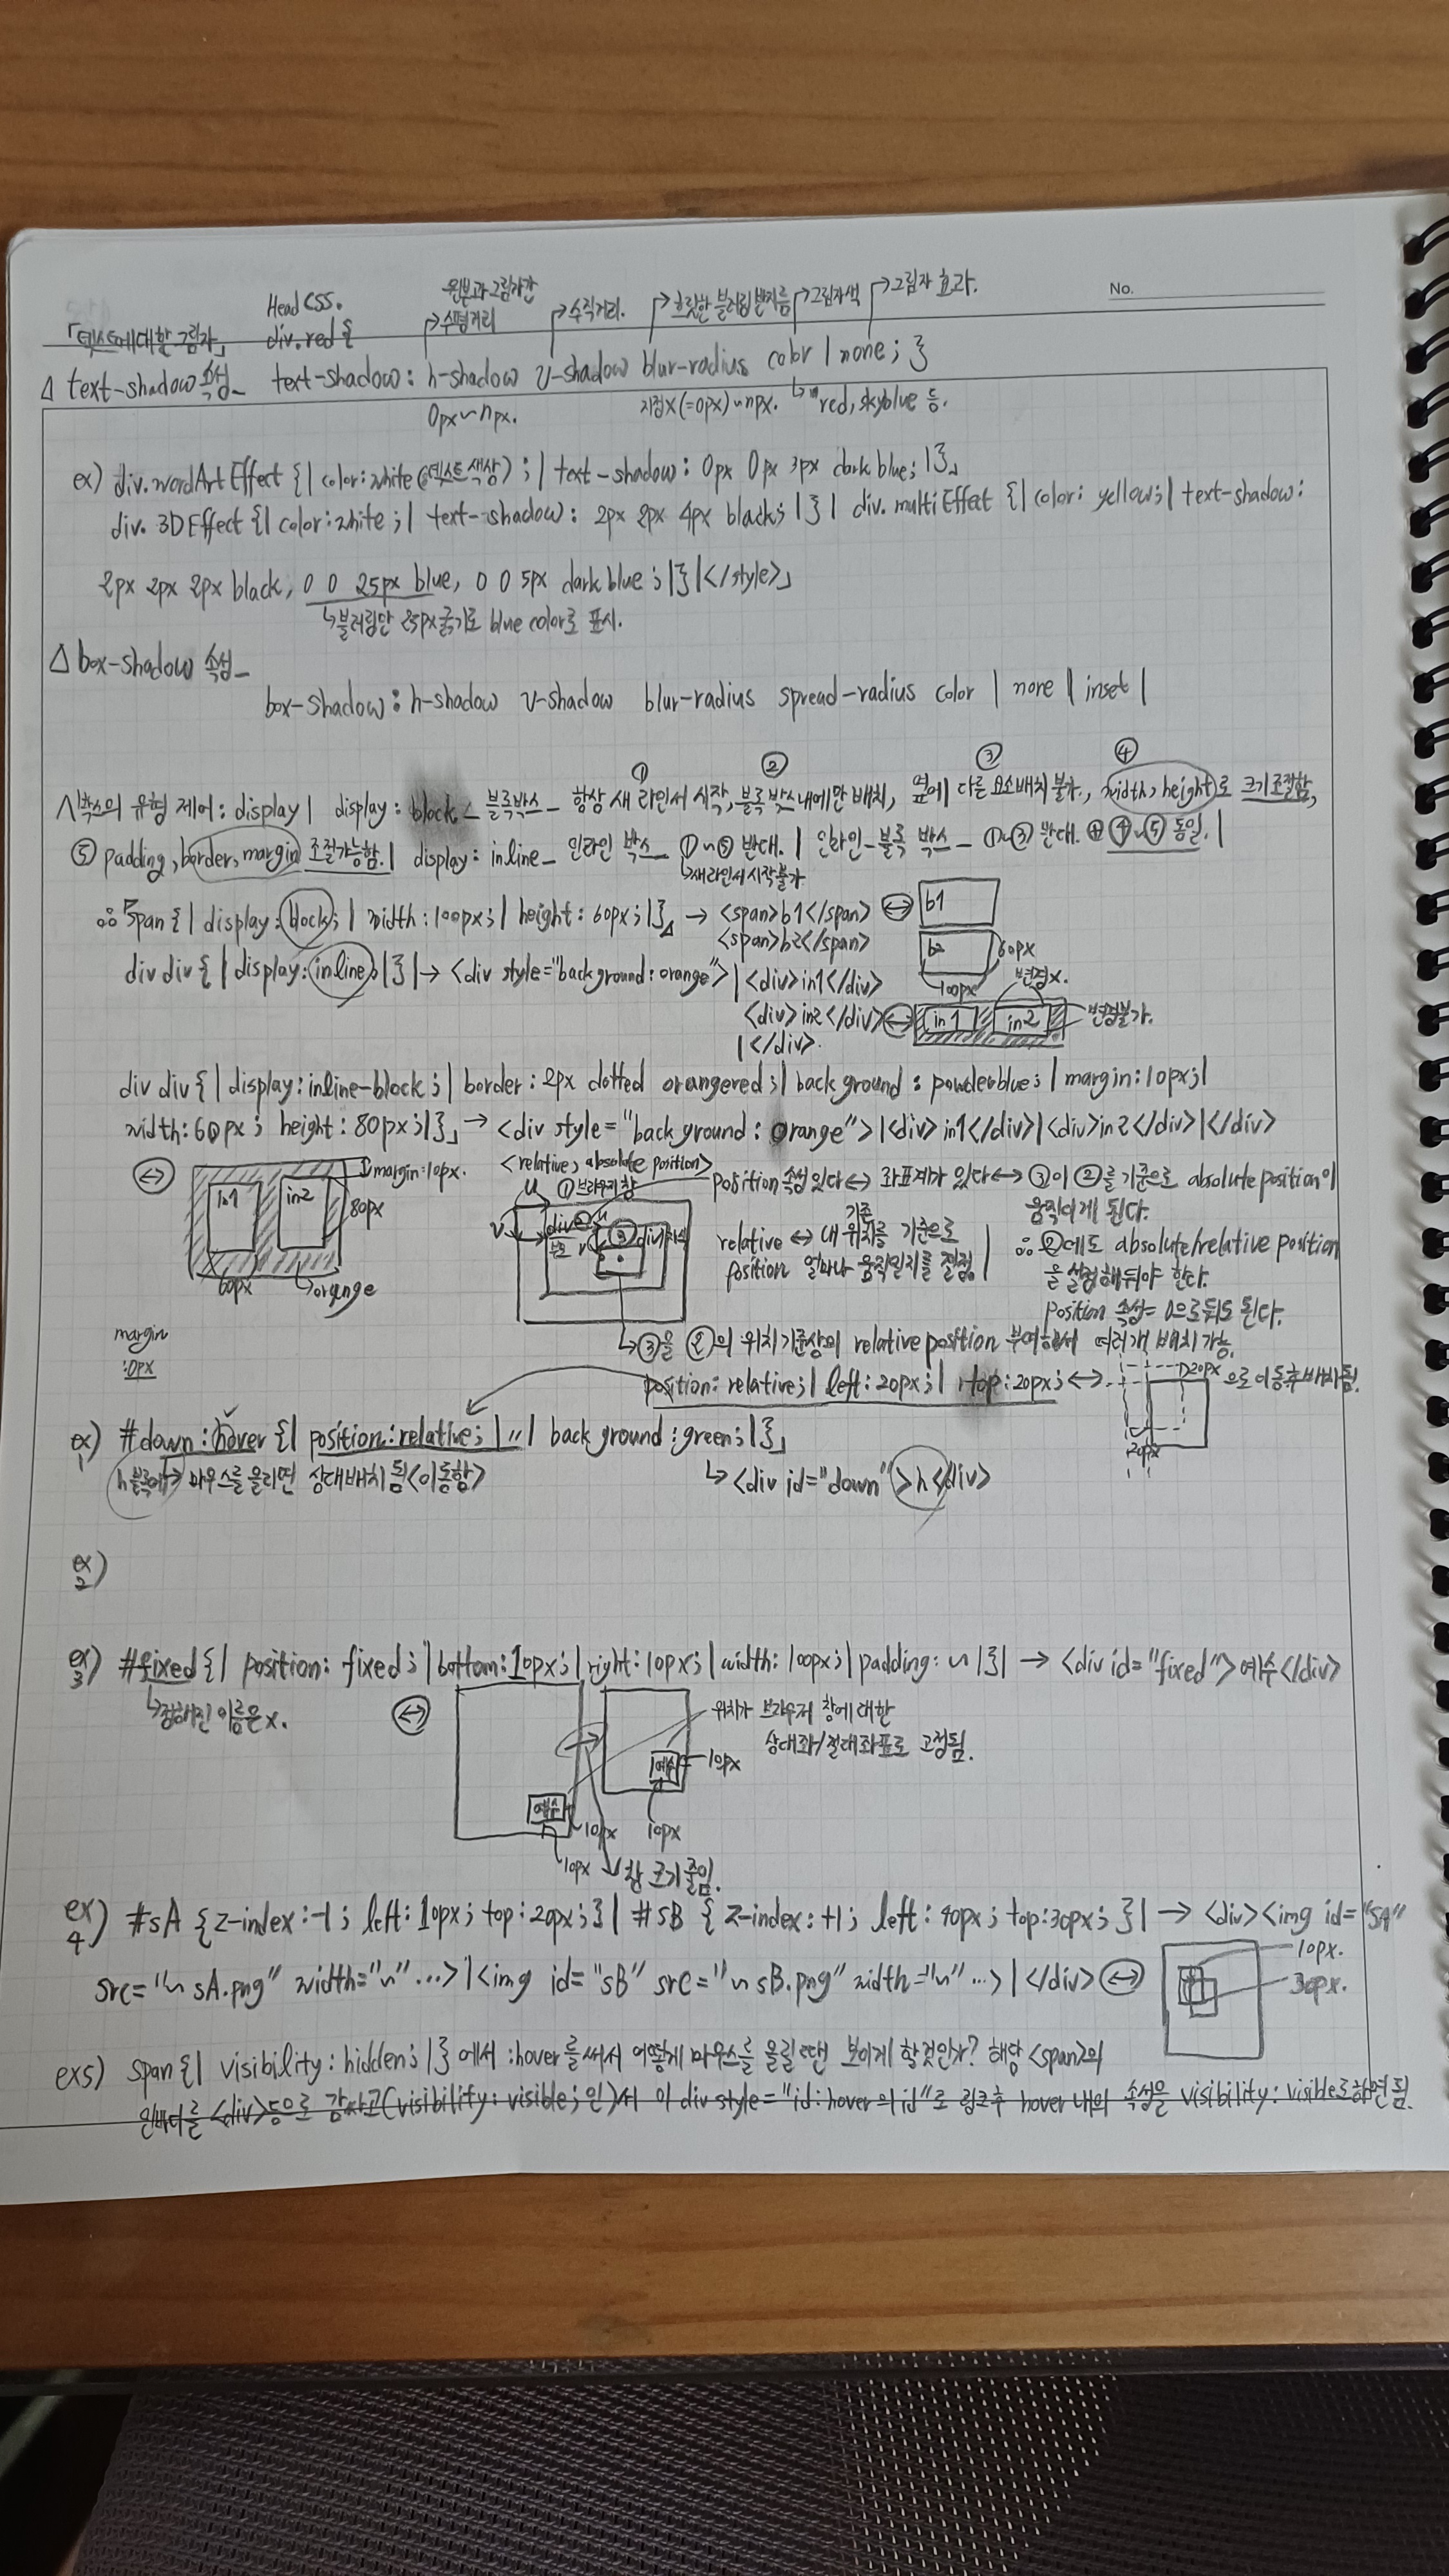 No.
Head CSS.
원본과 그림자간
「텍스트에대한 그림자」 div.red {
→수평거리 →수직거리. →흐릿한 블러링 반지름 →그림자색 →그림자 효과.
△ text-shadow 속성_ text-shadow: h-shadow v-shadow blur-radius color | none; }
0px~npx. 지정X(=0px)~npx. ↳ red, skyblue 등.
ex) div.wordArtEffect {| color:white (텍스트 색상) ;| text-shadow: 0px 0px 3px dark blue; |}」
div. 3D Effect {| color:white ;| text-shadow: 2px 2px 4px black; |} | div. multi Effect {| color: yellow;| text-shadow:
2px 2px 2px black, 0 0 25px blue, 0 0 5px dark blue ;|}|</style>」
↳블러링만 25px굵기로 blue color로 표시.
△ box-shadow 속성_
box-shadow: h-shadow v-shadow blur-radius spread-radius color | none | inset |
① ② ③ ④
박스의 유형 제어: display | display: block_ 블록박스_ 항상 새 라인서 시작, 블록 박스 내에만 배치, 옆에 다른 요소배치 불가., width, height로 크기조절함,
⑤ padding, border, margin 조절가능함.| display: inline_ 인라인 박스_ ①~⑤ 반대. | 인라인_블록 박스_ ①~③ 반대. ④~⑤ 동일. |
↳새라인서시작불가
∴ span {| display: block; | width:100px;| height: 60px; |}」 → <span>b1</span> ↔ b1
<span>b2</span> b2 60px
100px
div div {| display: inline; |}| → <div style="background: orange"> | <div>in1</div> 변경X.
<div>in2</div> ↔ in1 in2 변경불가.
|</div>.
div div {| display: inline-block ;| border: 2px dotted orangered ;| background : powderblue; | margin:10px;|
width: 60px ; height : 80px ;|}」 → <div style="background: orange">|<div>in1</div>|<div>in2</div>|</div>
↔ in1 in2 margin:10px. 80px 60px orange
<relative, absolute position>
u ①브라우저 창
v div② u
v ③ div
position 속성 있다 ↔ 좌표계가 있다 ↔ ③이 ②를 기준으로 absolute position이
움직이게 된다.
기존
relative ↔ 내 위치를 기준으로
position 얼마나 움직일지를 결정. |
∴ ②에도 absolute/relative position
을 설정해둬야 한다.
position 속성=0으로둬도 된다.
↳ ③을 ②의 위치기준상의 relative position 부여해서 여러개 배치 가능.
margin
:0px
position: relative;| left:20px;| top:20px; ↔ 20px 으로 이동후 배치됨.
20px
ex1) #down:hover {| position:relative; |〃| background :green; |}」
h블록에→ 마우스를 올리면 상대배치 됨<이동함> ↳ <div id="down">h<div>
ex2)
ex3) #fixed {| position: fixed; | bottom:10px;| right:10px;| width: 100px;| padding: ~ |}| → <div id="fixed">예수</div>
↳정해진 이름은x. ↔ 위치가 브라우저 창에 대한
상대좌/절대좌표로 고정됨.
예수 10px 10px
예수 10px 10px
창 크기 줄임.
ex4) #sA {z-index:-1; left:10px; top:20px;}| #sB {z-index:+1; left:40px; top:30px; }| → <div><img id="sA"
src="~sA.png" width="~"...>|<img id="sB" src="~sB.png" width="~"...>|</div> ↔
10px.
30px.
ex5) span {| visibility: hidden; |}에서 :hover를 써서 어떻게 마우스를 올릴 땐 보이게 할것인가? 해당 <span>의
<div>등으로 감싸고(visibility: visible; 인)서 이 div style="id:hover의 id"로 링크후 hover 내의 속성을 visibility: visible로하면 됨.